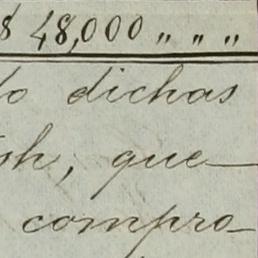 $ 48,000 „ „ „
do dichas
sh, que—
compro—